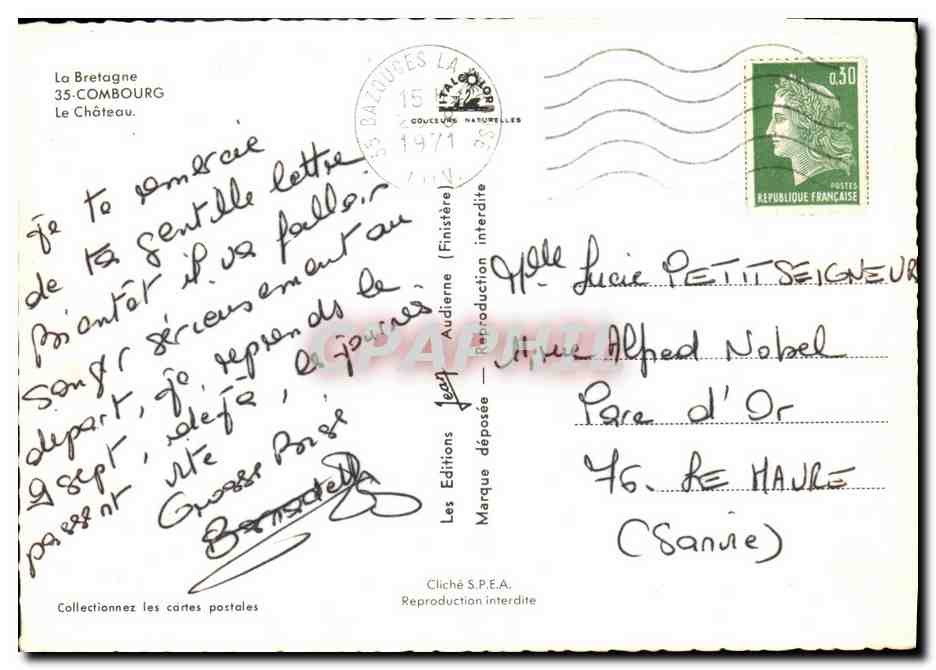 La Bretagne
35-COMBOURG
Le Château.
35 BAZOUGES LA
15
1971
ITALCOLOR
COULEURS NATURELLES
0,30
POSTES
REPUBLIQUE FRANÇAISE
Je te remercie
de ta gentille lettre
Bientôt il va falloir
songer sérieusement au
départ, je reprends le
9 sept, déjà, les journées
passent vite
Grosse Bise
Bernadette
Les Editions Jean Audierne (Finistère)
Marque déposée — Reproduction interdite
CPAPHIL
Mlle Lucie PETITSEIGNEUR
Alfred Nobel
Parc d'Or
76. LE HAVRE
(Sanvie)
Cliché S.P.E.A.
Reproduction interdite
Collectionnez les cartes postales